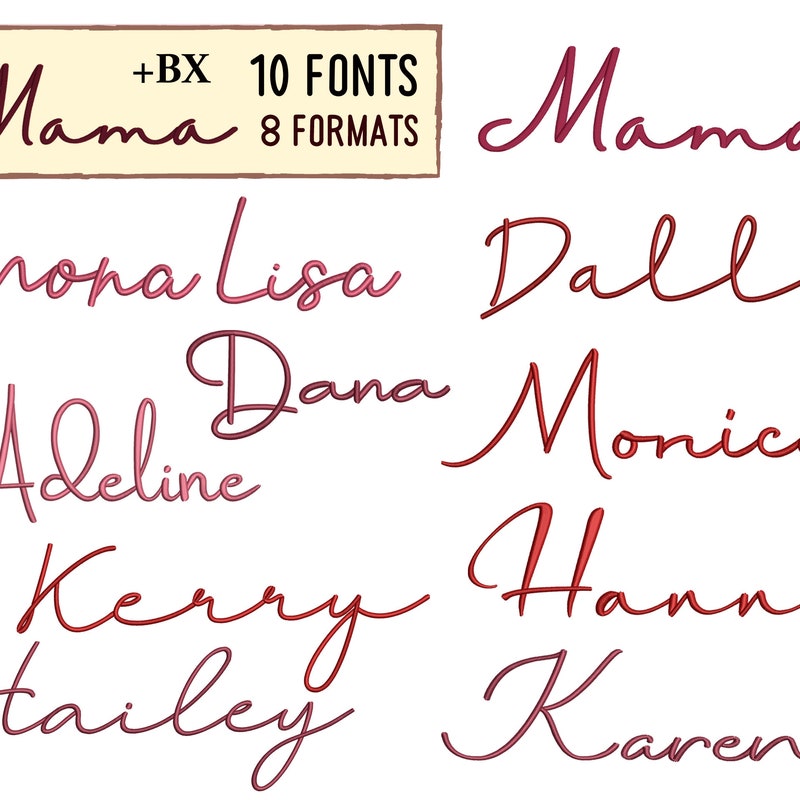 +BX 10 FONTS
Mama 8 FORMATS
Mama
nona Lisa
Dall
Dana
Monic
Adeline
Hann
Kerry
tailey
Karen